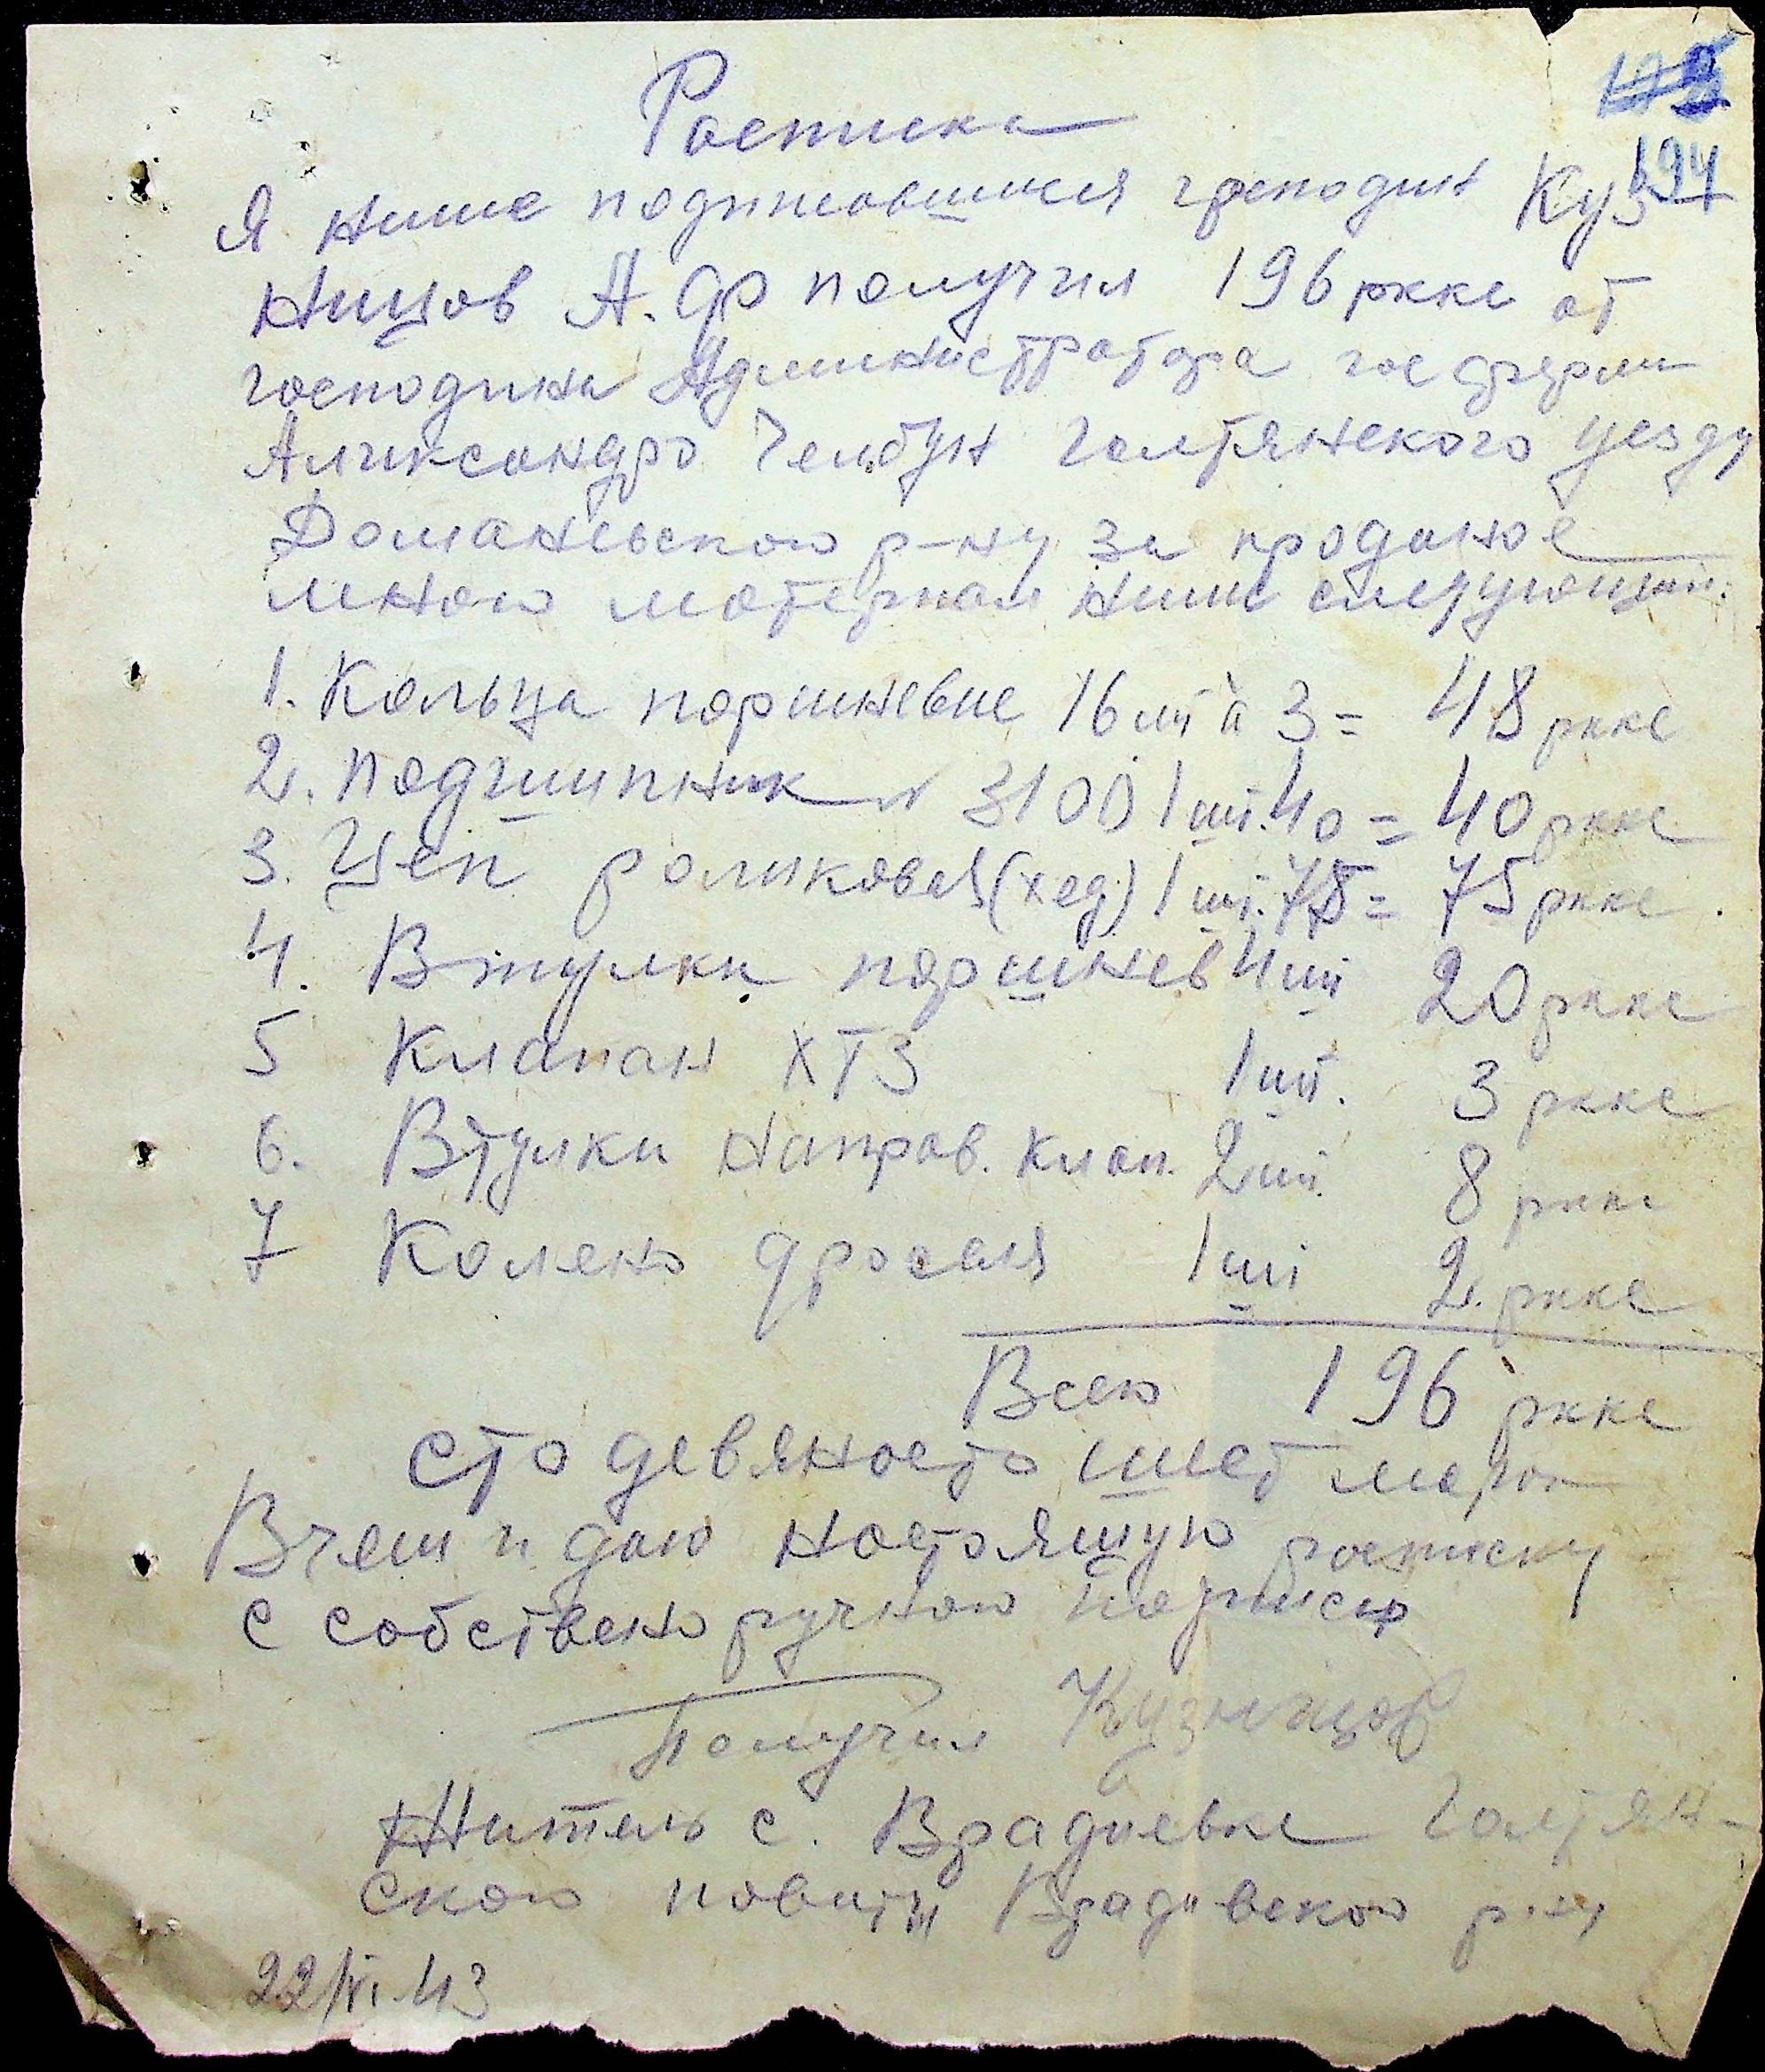 Росписка
194
Я ниже подписавшися господин Куз
ницов А. Ф получил 196 ркке от
господина Администратора гос фермы
Аликсандро Голтянского уезду
Доманевского р-ну за проданое
мною материал ниже следующий:
1. Кольца поршневые 16 шт à 3 = 48 ркке
2. подшипник № 3100 1 шт. 40 = 40 ркке
3. Цеп роликовая (хед) 1 шт. 75 = 75 ркке.
4. Втулки поршнев 4 шт 20 ркке
5 Клапан ХТЗ 1 шт. 3 ркке
6. Втулки направ. клап. 2 шт. 8 ркке
7 Колено дроселя 1 шт 2. ркке
Всего 196 ркке
сто девяносто шест марок
В чем и даю настоящую росписку
с собствено ручною подписю
Получил Кузницов
Житель с. Врадиевке Голтян-
ского повиту Врадивского р-ну
22/VI. 43